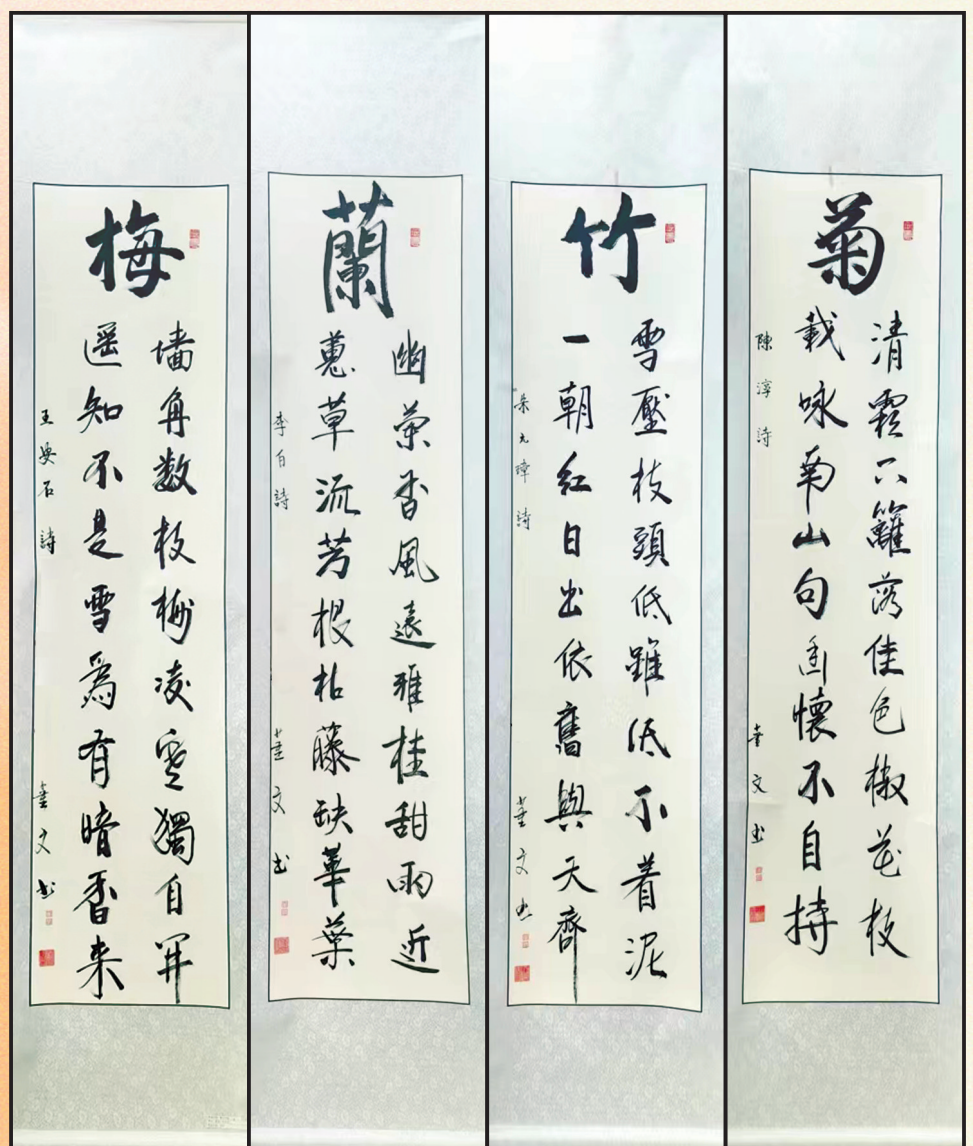 梅
墙角数枝梅凌寒獨自开
遥知不是雪爲有暗香来
王安石詩
董文书
蘭
幽蘭香風遠雅桂甜雨近
蕙草流芳根枯藤缺華葉
李白詩
董文书
竹
雪壓枝頭低雖低不着泥
一朝紅日出依舊與天齊
朱元璋詩
董文书
菊
清霜下籬落佳色散花枝
載咏南山句幽懷不自持
陳淳詩
董文书